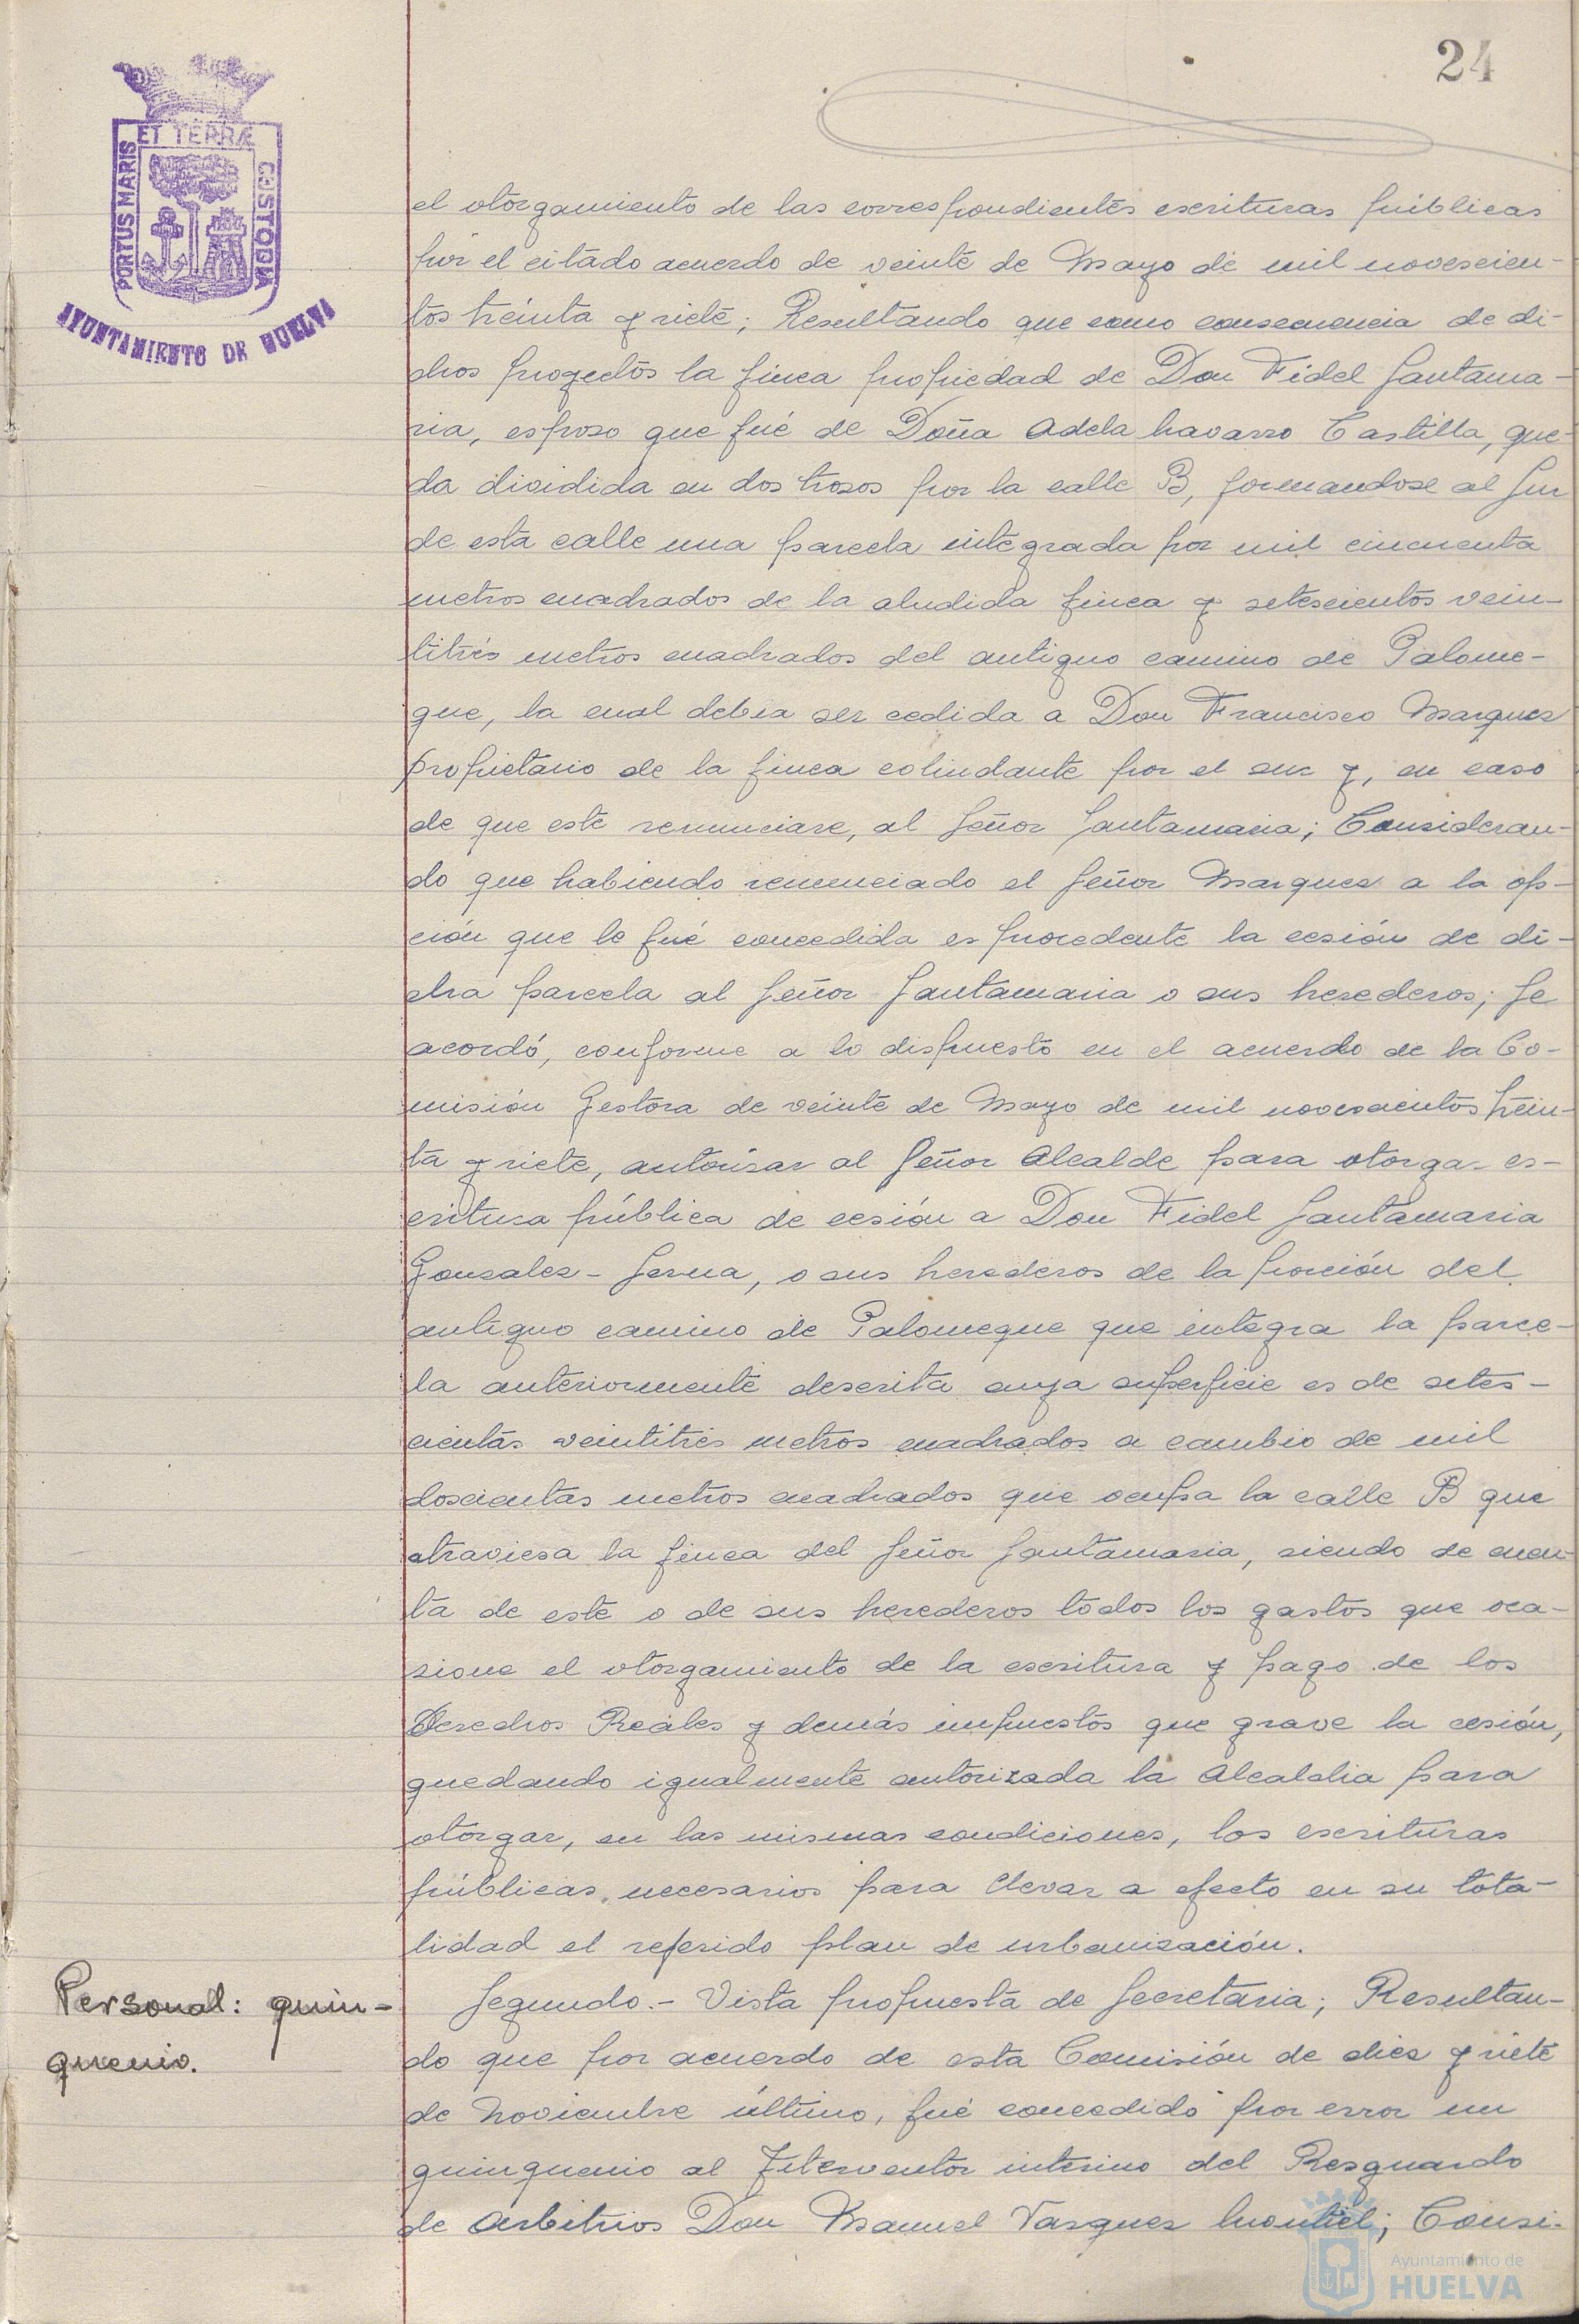 24
ET TERRÆ
PORTUS MARIS
CUSTODIA
AYUNTAMIENTO DE HUELVA
el otorgamiento de las correspondientes escrituras públicas
por el citado acuerdo de veinte de Mayo de mil novescien-
tos treinta y siete; Resultando que como consecuencia de di-
chos proyectos la finca propiedad de Don Fidel Santama-
ria, esposo que fué de Doña Adela Navarro Castilla, que-
da dividida en dos trosos por la calle B, formandose al Sur
de esta calle una parcela integrada por mil cincuenta
metros cuadrados de la aludida finca y setescientos vein-
titrés metros cuadrados del antiguo camino de Palome-
que, la cual debia ser cedida a Don Francisco Marquez
propietario de la finca colindante por el sur y, en caso
de que este renunciare, al Señor Santamaria; Consideran-
do que habiendo renunciado el Señor Marquez a la op-
ción que le fué concedida es procedente la cesión de di-
cha parcela al Señor Santamaria o sus herederos; Se
acordó, conforme a lo dispuesto en el acuerdo de la Co-
misión Gestora de veinte de Mayo de mil novescientos trein-
ta y siete, autorisar al Señor Alcalde para otorgar es-
critura pública de cesión a Don Fidel Santamaria
Gonsalez-Serna, o sus herederos de la porción del
antiguo camino de Palomeque que integra la parce-
la anteriormente descrita cuya superficie es de setes-
cientas veintitrés metros cuadrados a cambio de mil
doscientas metros cuadrados que ocupa la calle B que
atraviesa la finca del Señor Santamaria, siendo de cuen-
ta de este o de sus herederos todos los gastos que oca-
sione el otorgamiento de la escritura y pago de los
Derechos Reales y demás impuestos que grave la cesión,
quedando igualmente autorizada la Alcaldia para
otorgar, en las mismas condiciones, las escrituras
públicas, necesarios para llevar a efecto en su tota-
lidad el referido plan de urbanisación.
Personal: quin-
quenio.
Segundo.- Vista propuesta de Secretaria; Resultan-
do que por acuerdo de esta Comisión de diez y siete
de Noviembre último, fué concedido por error un
quinquenio al Interventor interino del Resguardo
de Arbitrios Don Manuel Vasquez Montiel; Consi-
Ayuntamiento de
HUELVA